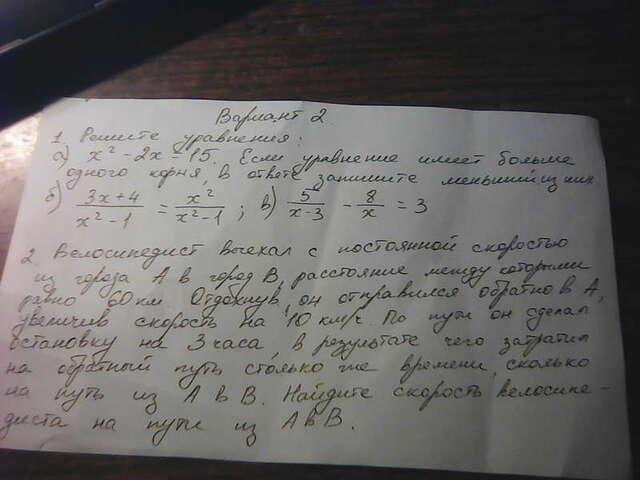 Вариант 2.
1. Решите уравнения:
а) x² - 2x = 15. Если уравнение имеет больше
одного корня, в ответе запишите меньший из них
б) (3x+4)/(x²-1) = x²/(x²-1); в) 5/(x-3) - 8/x = 3
2. Велосипедист выехал с постоянной скоростью
из города А в город В, расстояние между которыми
равно 60 км. Отдохнув, он отправился обратно в А,
увеличив скорость на 10 км/ч. По пути он сделал
остановку на 3 часа, в результате чего затратил
на обратный путь столько же времени, сколько
на путь из А в В. Найдите скорость велосипе-
диста на пути из А в В.